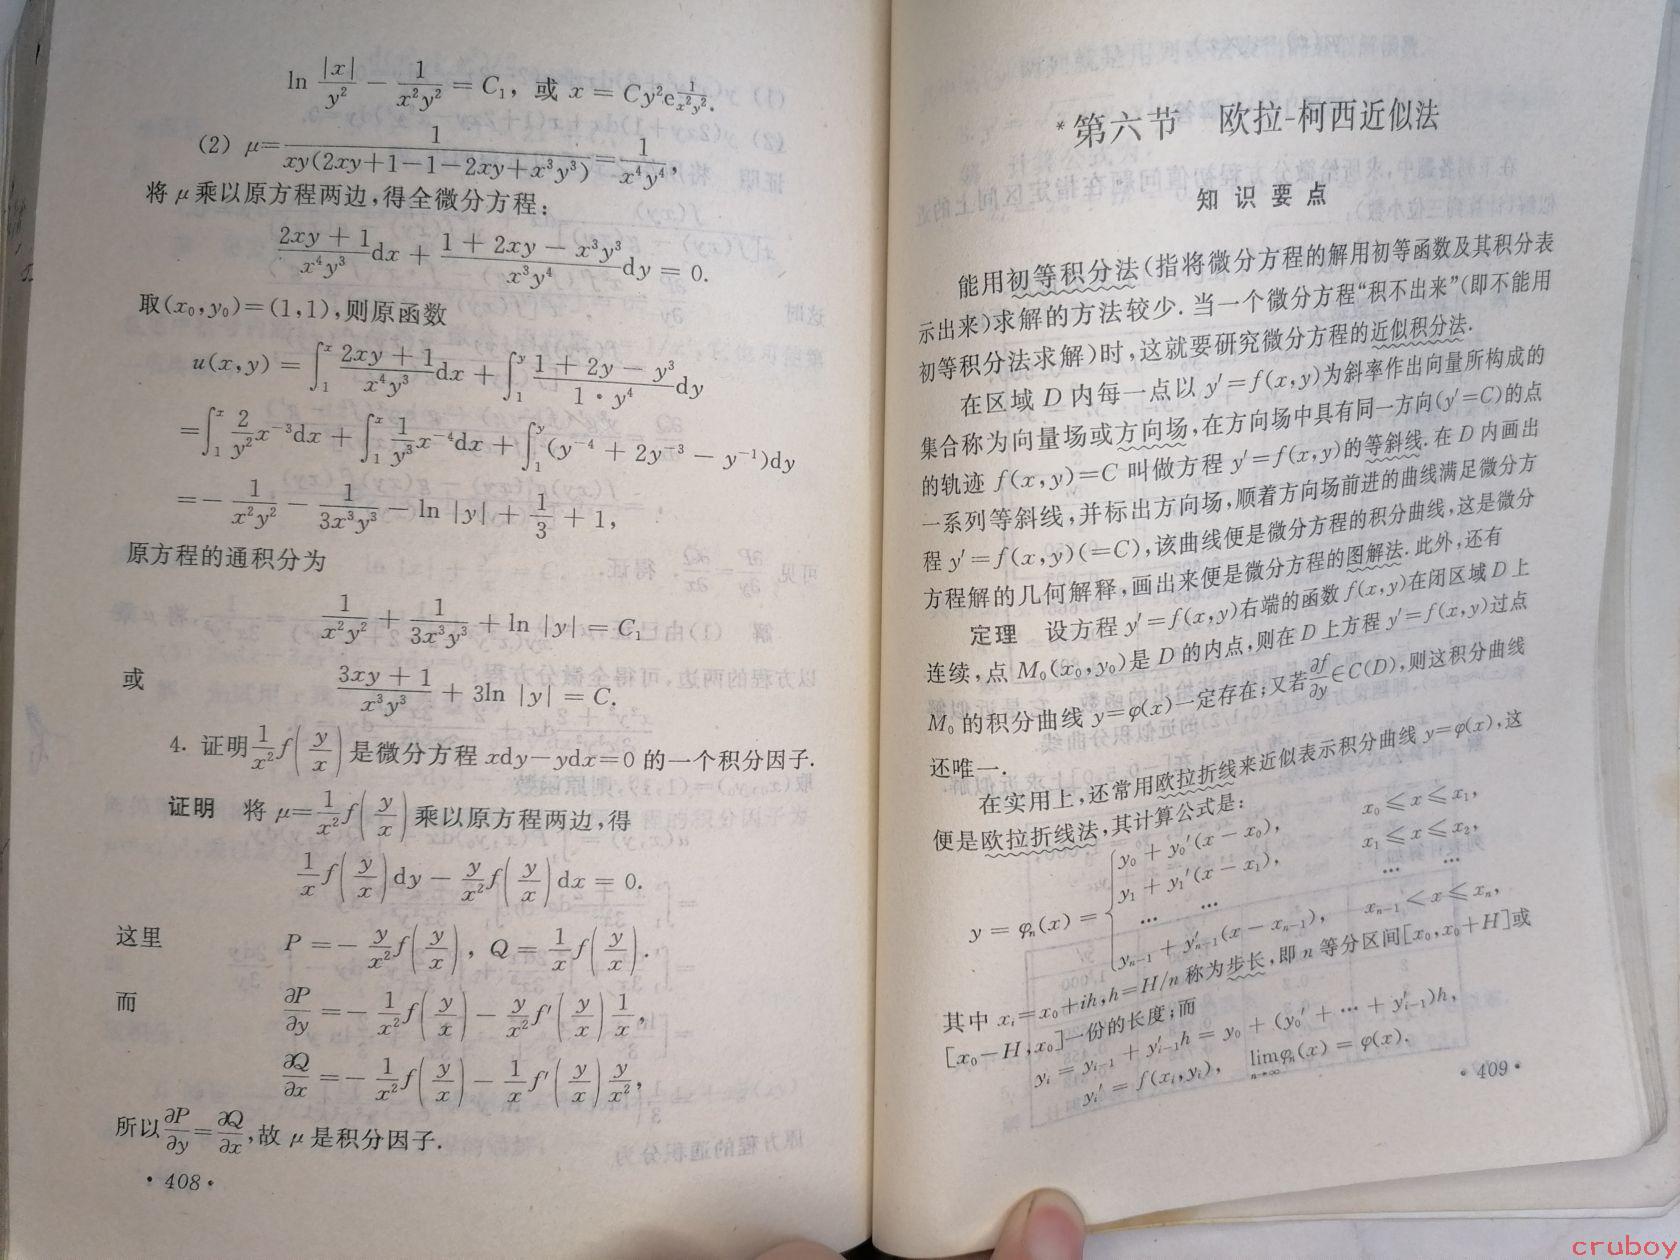 ln |x|/y² − 1/(x²y²) = C₁, 或 x = Cy²e^(1/(x²y²)).
(2) μ=1/(xy(2xy+1−1−2xy+x³y³))=1/(x⁴y⁴),
将 μ 乘以原方程两边,得全微分方程:
(2xy+1)/(x⁴y³)dx + (1+2xy−x³y³)/(x³y⁴)dy = 0.
取(x₀,y₀)=(1,1),则原函数
u(x,y) = ∫₁ˣ (2xy+1)/(x⁴y³)dx + ∫₁ʸ (1+2y−y³)/(1·y⁴)dy
=∫₁ˣ 2/y² x⁻³dx + ∫₁ˣ 1/y³ x⁻⁴dx + ∫₁ʸ(y⁻⁴ + 2y⁻³ − y⁻¹)dy
=− 1/(x²y²) − 1/(3x³y³) − ln |y| + 1/3 + 1,
原方程的通积分为
1/(x²y²) + 1/(3x³y³) + ln |y| = C₁
或 (3xy+1)/(x³y³) + 3ln |y| = C.
4. 证明 1/x² f(y/x) 是微分方程 xdy−ydx=0 的一个积分因子.
证明 将 μ=1/x² f(y/x) 乘以原方程两边,得
1/x f(y/x)dy − y/x² f(y/x)dx = 0.
这里 P =− y/x² f(y/x), Q = 1/x f(y/x).
而 ∂P/∂y =− 1/x² f(y/x) − y/x² f′(y/x) 1/x,
∂Q/∂x =− 1/x² f(y/x) − 1/x f′(y/x) y/x²,
所以 ∂P/∂y=∂Q/∂x,故 μ 是积分因子.
·408·
*第六节 欧拉-柯西近似法
知识要点
能用初等积分法(指将微分方程的解用初等函数及其积分表
示出来)求解的方法较少. 当一个微分方程“积不出来”(即不能用
初等积分法求解)时,这就要研究微分方程的近似积分法.
在区域 D 内每一点以 y′=f(x,y)为斜率作出向量所构成的
集合称为向量场或方向场,在方向场中具有同一方向(y′=C)的点
的轨迹 f(x,y)=C 叫做方程 y′=f(x,y)的等斜线. 在 D 内画出
一系列等斜线,并标出方向场,顺着方向场前进的曲线满足微分方
程 y′=f(x,y)(=C),该曲线便是微分方程的积分曲线,这是微分
方程解的几何解释,画出来便是微分方程的图解法. 此外,还有
定理 设方程 y′=f(x,y)右端的函数 f(x,y)在闭区域 D 上
连续,点 M₀(x₀,y₀)是 D 的内点,则在 D 上方程 y′=f(x,y)过点
M₀ 的积分曲线 y=φ(x)一定存在;又若 ∂f/∂y∈C(D),则这积分曲线
还唯一.
在实用上,还常用欧拉折线来近似表示积分曲线 y=φ(x),这
便是欧拉折线法,其计算公式是:
y₀ + y₀′(x − x₀), x₀ ≤ x ≤ x₁,
y₁ + y₁′(x − x₁), x₁ ≤ x ≤ x₂,
y = φₙ(x) = { … … … …
yₙ₋₁ + y′ₙ₋₁(x − xₙ₋₁), xₙ₋₁ ≤ x ≤ xₙ,
其中 xᵢ=x₀+ih,h=H/n 称为步长,即 n 等分区间[x₀,x₀+H]或
[x₀−H,x₀]一份的长度;而
yᵢ = yᵢ₋₁ + y′ᵢ₋₁h = y₀ + (y₀′ + … + y′ᵢ₋₁)h,
yᵢ′ = f(xᵢ,yᵢ), lim n→∞ φₙ(x) = φ(x).
·409·
cruboy